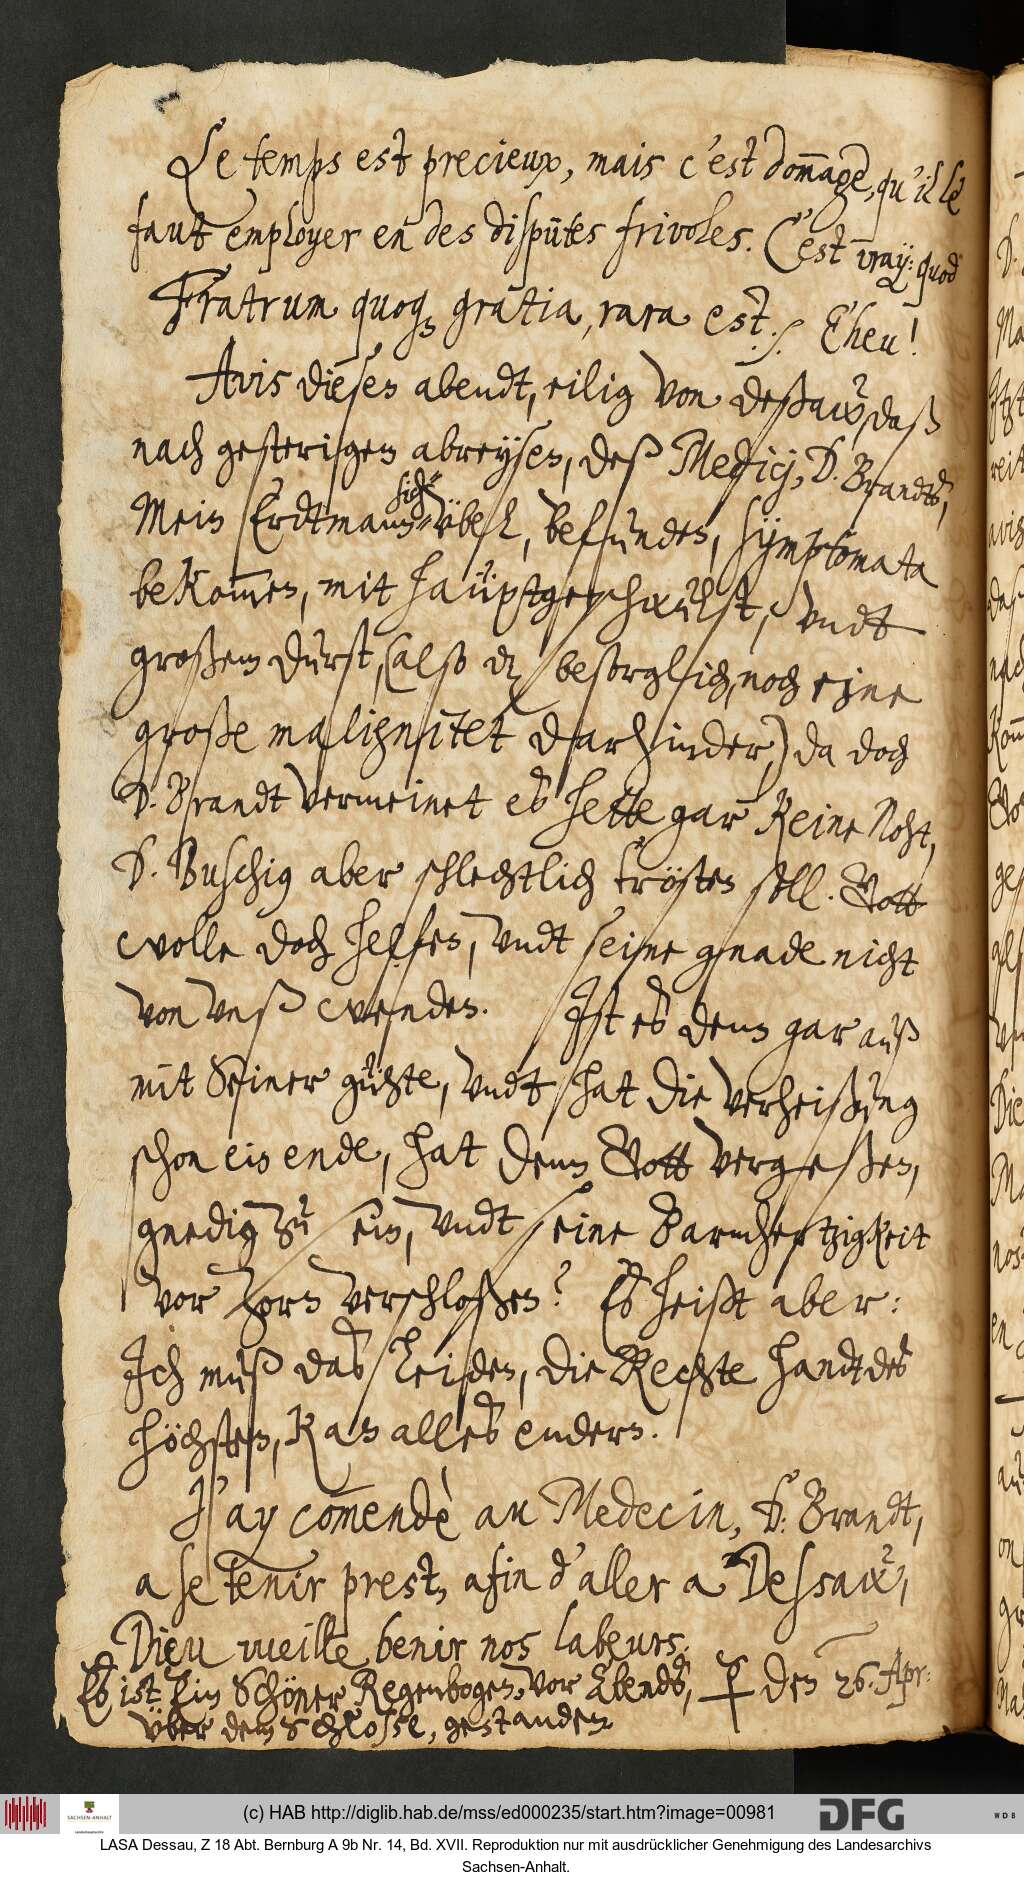 Le temps est precieux, mais c'est dom̃age, qu'il le
faut employer en des dispütes frivoles. C'est vray: quod
Fratrum quoq₃ gratia, rara est. /. Eheu!
Avis diesen abendt, eilig von Deßaw, daß
nach gesterigen abreysen, deß Medicj, D. Brandts,
Mein Erdtmann sich übell, befunden, symptomata
bekom̃en, mit hauptgeschwulst, vndt
großem durst, (also dz besorglich, noch eine
große malignitet darhinder,) da doch
D. Brandt vermeinet es hette gar keine Noht,
D. Buschig aber schlechtlich trösten soll. Gott
wolle doch helfen, vndt seine gnade nicht
von vnß wenden. Ist es denn gar auß
mit Seiner gühte, vndt hat die verheißung
schon ein ende, hat denn Gott vergeßen,
gnedig zu sein, vndt seine Barmhertzigkeit
vor zorn verschloßen? Es heißt aber:
Ich muß das leiden, die Rechte handt des
höchsten, kan alles endern.
J'ay com̃endè au Medecin, D. Brandt,
a se tenir prest, afin d'aller a Dessaw,
Dieu vueille benir nos labeurs.
Es ist Ein Schöner Regenbogen, vor Abends, den 26. Apr:
über dem Schlosse, gestanden
(c) HAB http://diglib.hab.de/mss/ed000235/start.htm?image=00981
SACHSEN-ANHALT
DFG
W D B
LASA Dessau, Z 18 Abt. Bernburg A 9b Nr. 14, Bd. XVII. Reproduktion nur mit ausdrücklicher Genehmigung des Landesarchivs
Sachsen-Anhalt.